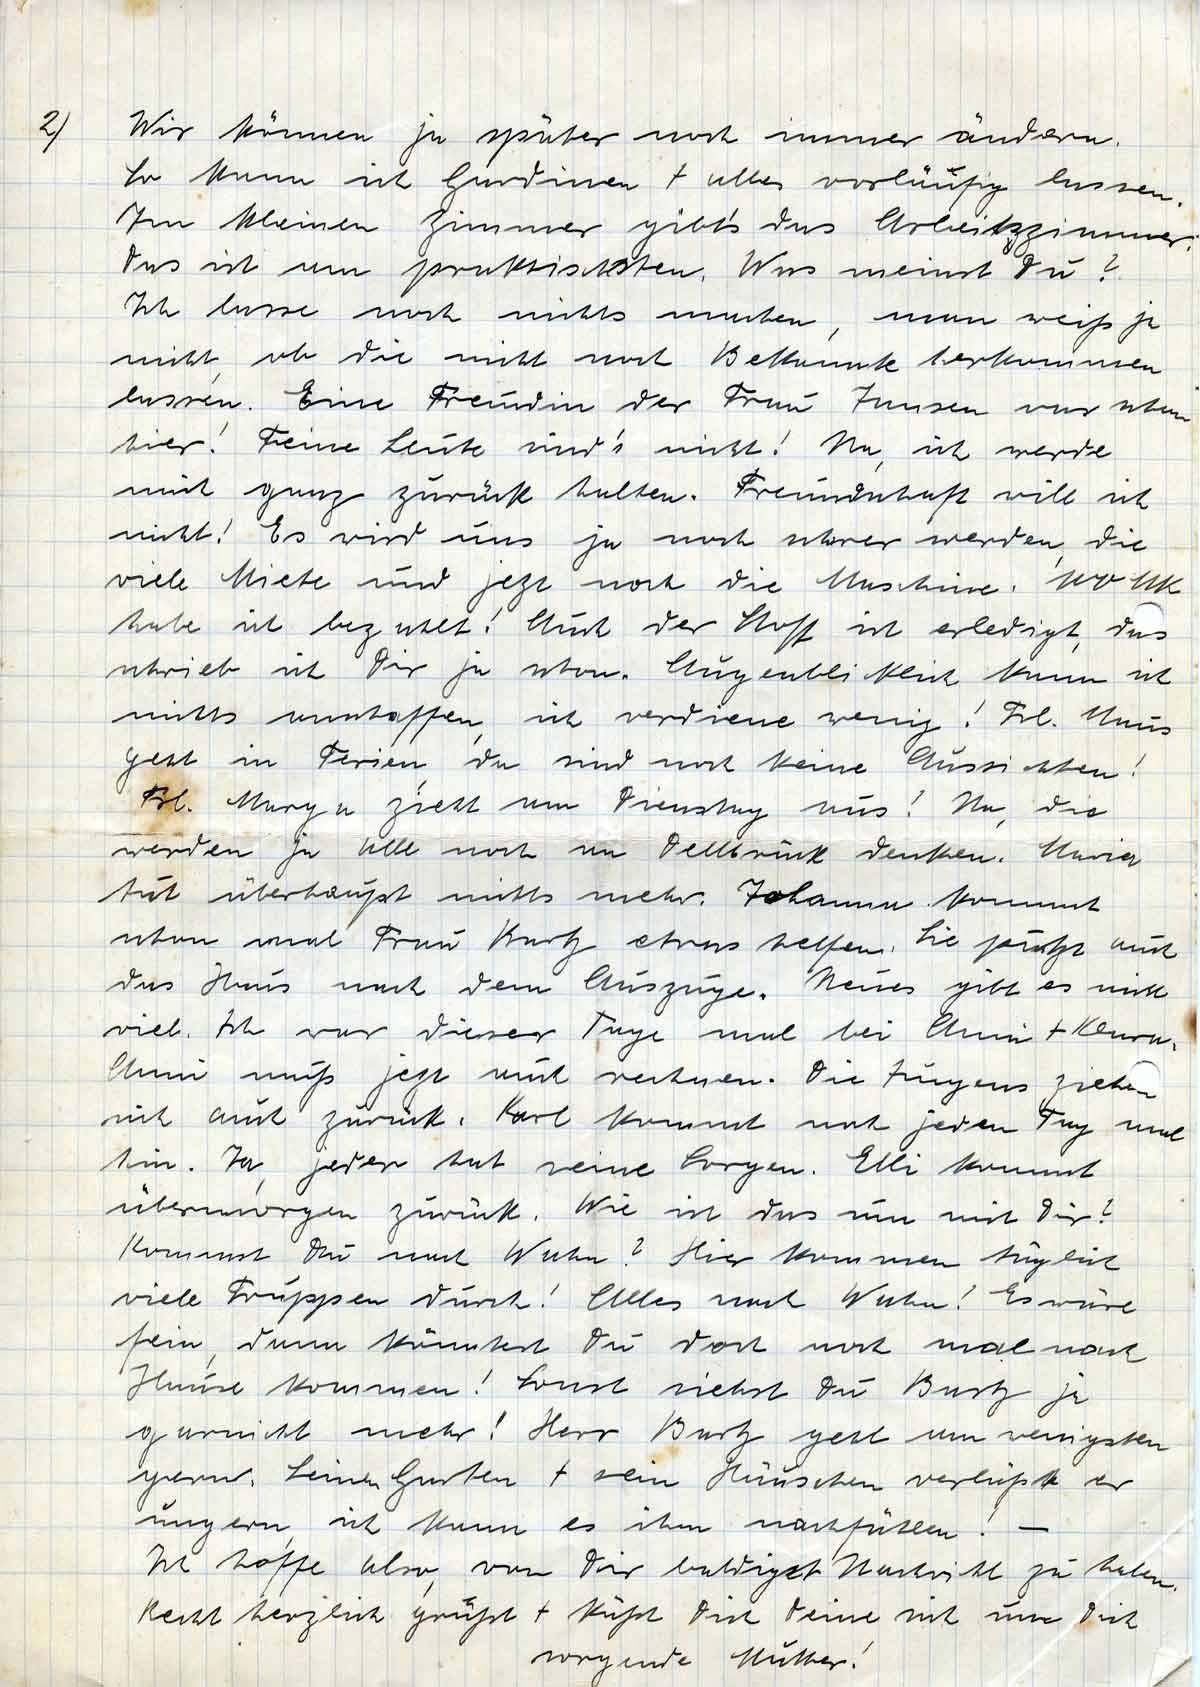 2/ Wir können ja später noch immer ändern.
So kann ich Gardinen + alles vorläufig lassen.
Im kleinen Zimmer gibt's das Arbeitszimmer.
Das ist am praktischsten. Was meinst Du?
Ich lasse noch nichts machen, man weiß ja
nicht, ob die nicht noch Bekannte herkommen
lassen. Eine Freundin der Frau Jansen war schon
hier! Feine Leute sind's nicht! Na, ich werde
mich ganz zurück halten. Freundschaft will ich
nicht! Es wird uns ja noch schwer werden, die
viele Miete und jetzt noch die Maschine. 100 Mk
habe ich bezahlt! Auch der Stoff ist erledigt, das
schrieb ich Dir ja schon. Augenblicklich kann ich
nichts anschaffen, ich verdiene wenig! Frl. Maus
geht in Ferien, da sind noch keine Aussichten!
Frl. Marga zieht am Dienstag aus! Na, die
werden ja alle noch an Dellbrück denken. Maria
tut überhaupt nichts mehr. Johanna kommt
schon mal Frau Bartz etwas helfen. Sie putzt auch
das Haus nach dem Auszuge. Neues gibt es nicht
viel. Ich war dieser Tage mal bei Anni + Klara.
Anni muß jetzt auch rechnen. Die Jungens ziehen
sich auch zurück. Karl kommt noch jeden Tag mal
hin. Ja, jeder hat seine Sorgen. Elli kommt
übermorgen zurück. Wie ist das nun mit Dir?
Kommst Du nach Wahn? Hier kommen täglich
viele Truppen durch! Alles nach Wahn! Es wäre
fein, dann könntest Du doch noch mal nach
Hause kommen! Sonst siehst Du Bartz ja
garnicht mehr! Herr Bartz geht am wenigsten
gern. Seinen Garten + sein Häuschen verläßt er
ungern, ich kann es ihm nachfühlen! —
Ich hoffe also, von Dir baldigst Nachricht zu haben.
Recht herzlich grüßt + küßt Dich Deine sich um Dich
sorgende Mutter!